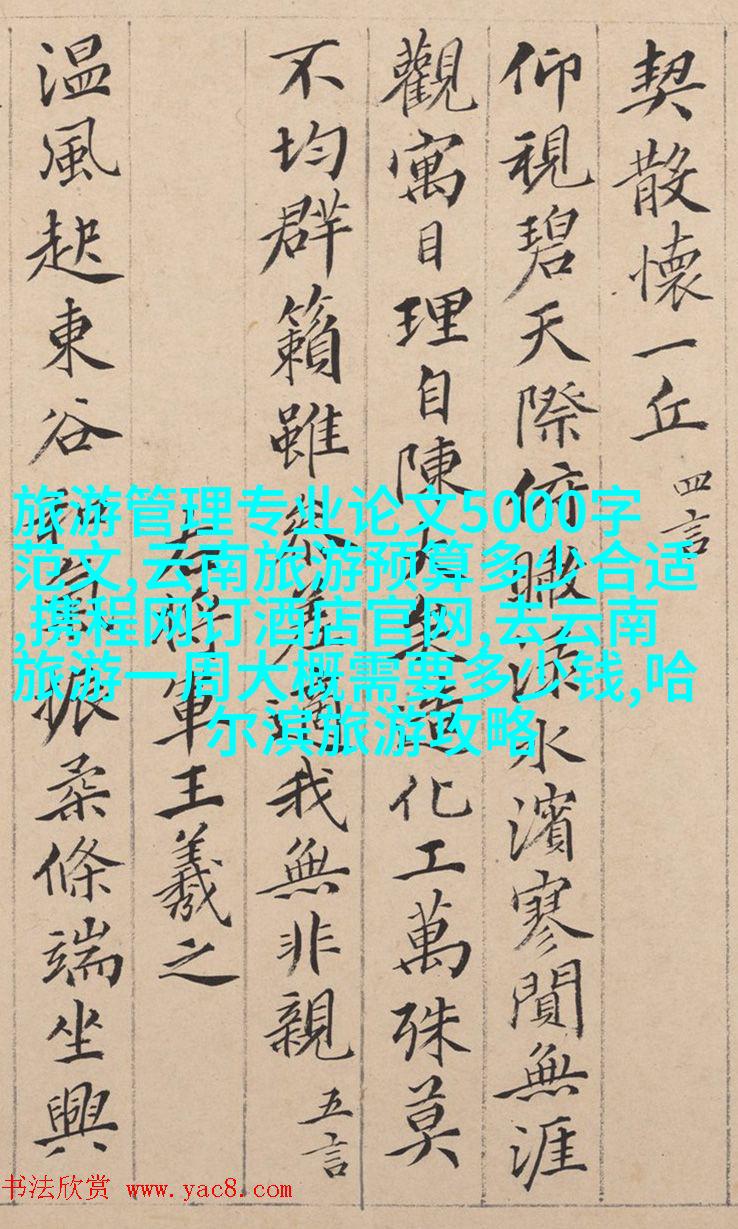 契散懷一丘 四言
仰視碧天際俯瞰淥水濱寥閴無涯
觀寓目理自陳大矣造化工萬殊莫
不均群籟雖參差適我無非親 五言
右將軍王羲之
温風起東谷和氣振柔條端坐興
旅游管理专业论文5000字
范文,云南旅游预算多少合适
,携程网订酒店官网,去云南
旅游一周大概需要多少钱,哈
尔滨旅游攻略
书法欣赏 www.yac8.com